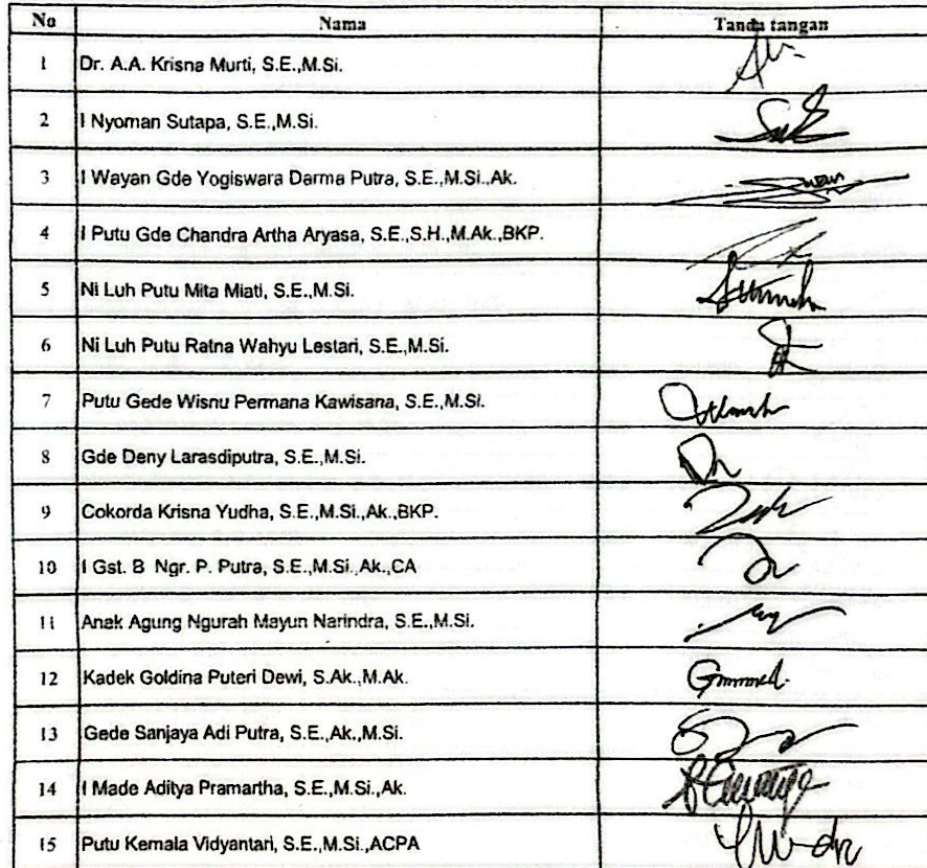 No Nama Tanda tangan
1 Dr. A.A. Krisna Murti, S.E.,M.Si.
2 I Nyoman Sutapa, S.E.,M.Si.
3 I Wayan Gde Yogiswara Darma Putra, S.E.,M.Si.,Ak.
4 I Putu Gde Chandra Artha Aryasa, S.E.,S.H.,M.Ak.,BKP.
5 Ni Luh Putu Mita Miati, S.E.,M.Si.
6 Ni Luh Putu Ratna Wahyu Lestari, S.E.,M.Si.
7 Putu Gede Wisnu Permana Kawisana, S.E.,M.Si.
8 Gde Deny Larasdiputra, S.E.,M.Si.
9 Cokorda Krisna Yudha, S.E.,M.Si.,Ak.,BKP.
10 I Gst. B Ngr. P. Putra, S.E.,M.Si.,Ak.,CA
11 Anak Agung Ngurah Mayun Narindra, S.E.,M.Si.
12 Kadek Goldina Puteri Dewi, S.Ak.,M.Ak.
13 Gede Sanjaya Adi Putra, S.E.,Ak.,M.Si.
14 I Made Aditya Pramartha, S.E.,M.Si.,Ak.
15 Putu Kemala Vidyantari, S.E.,M.Si.,ACPA